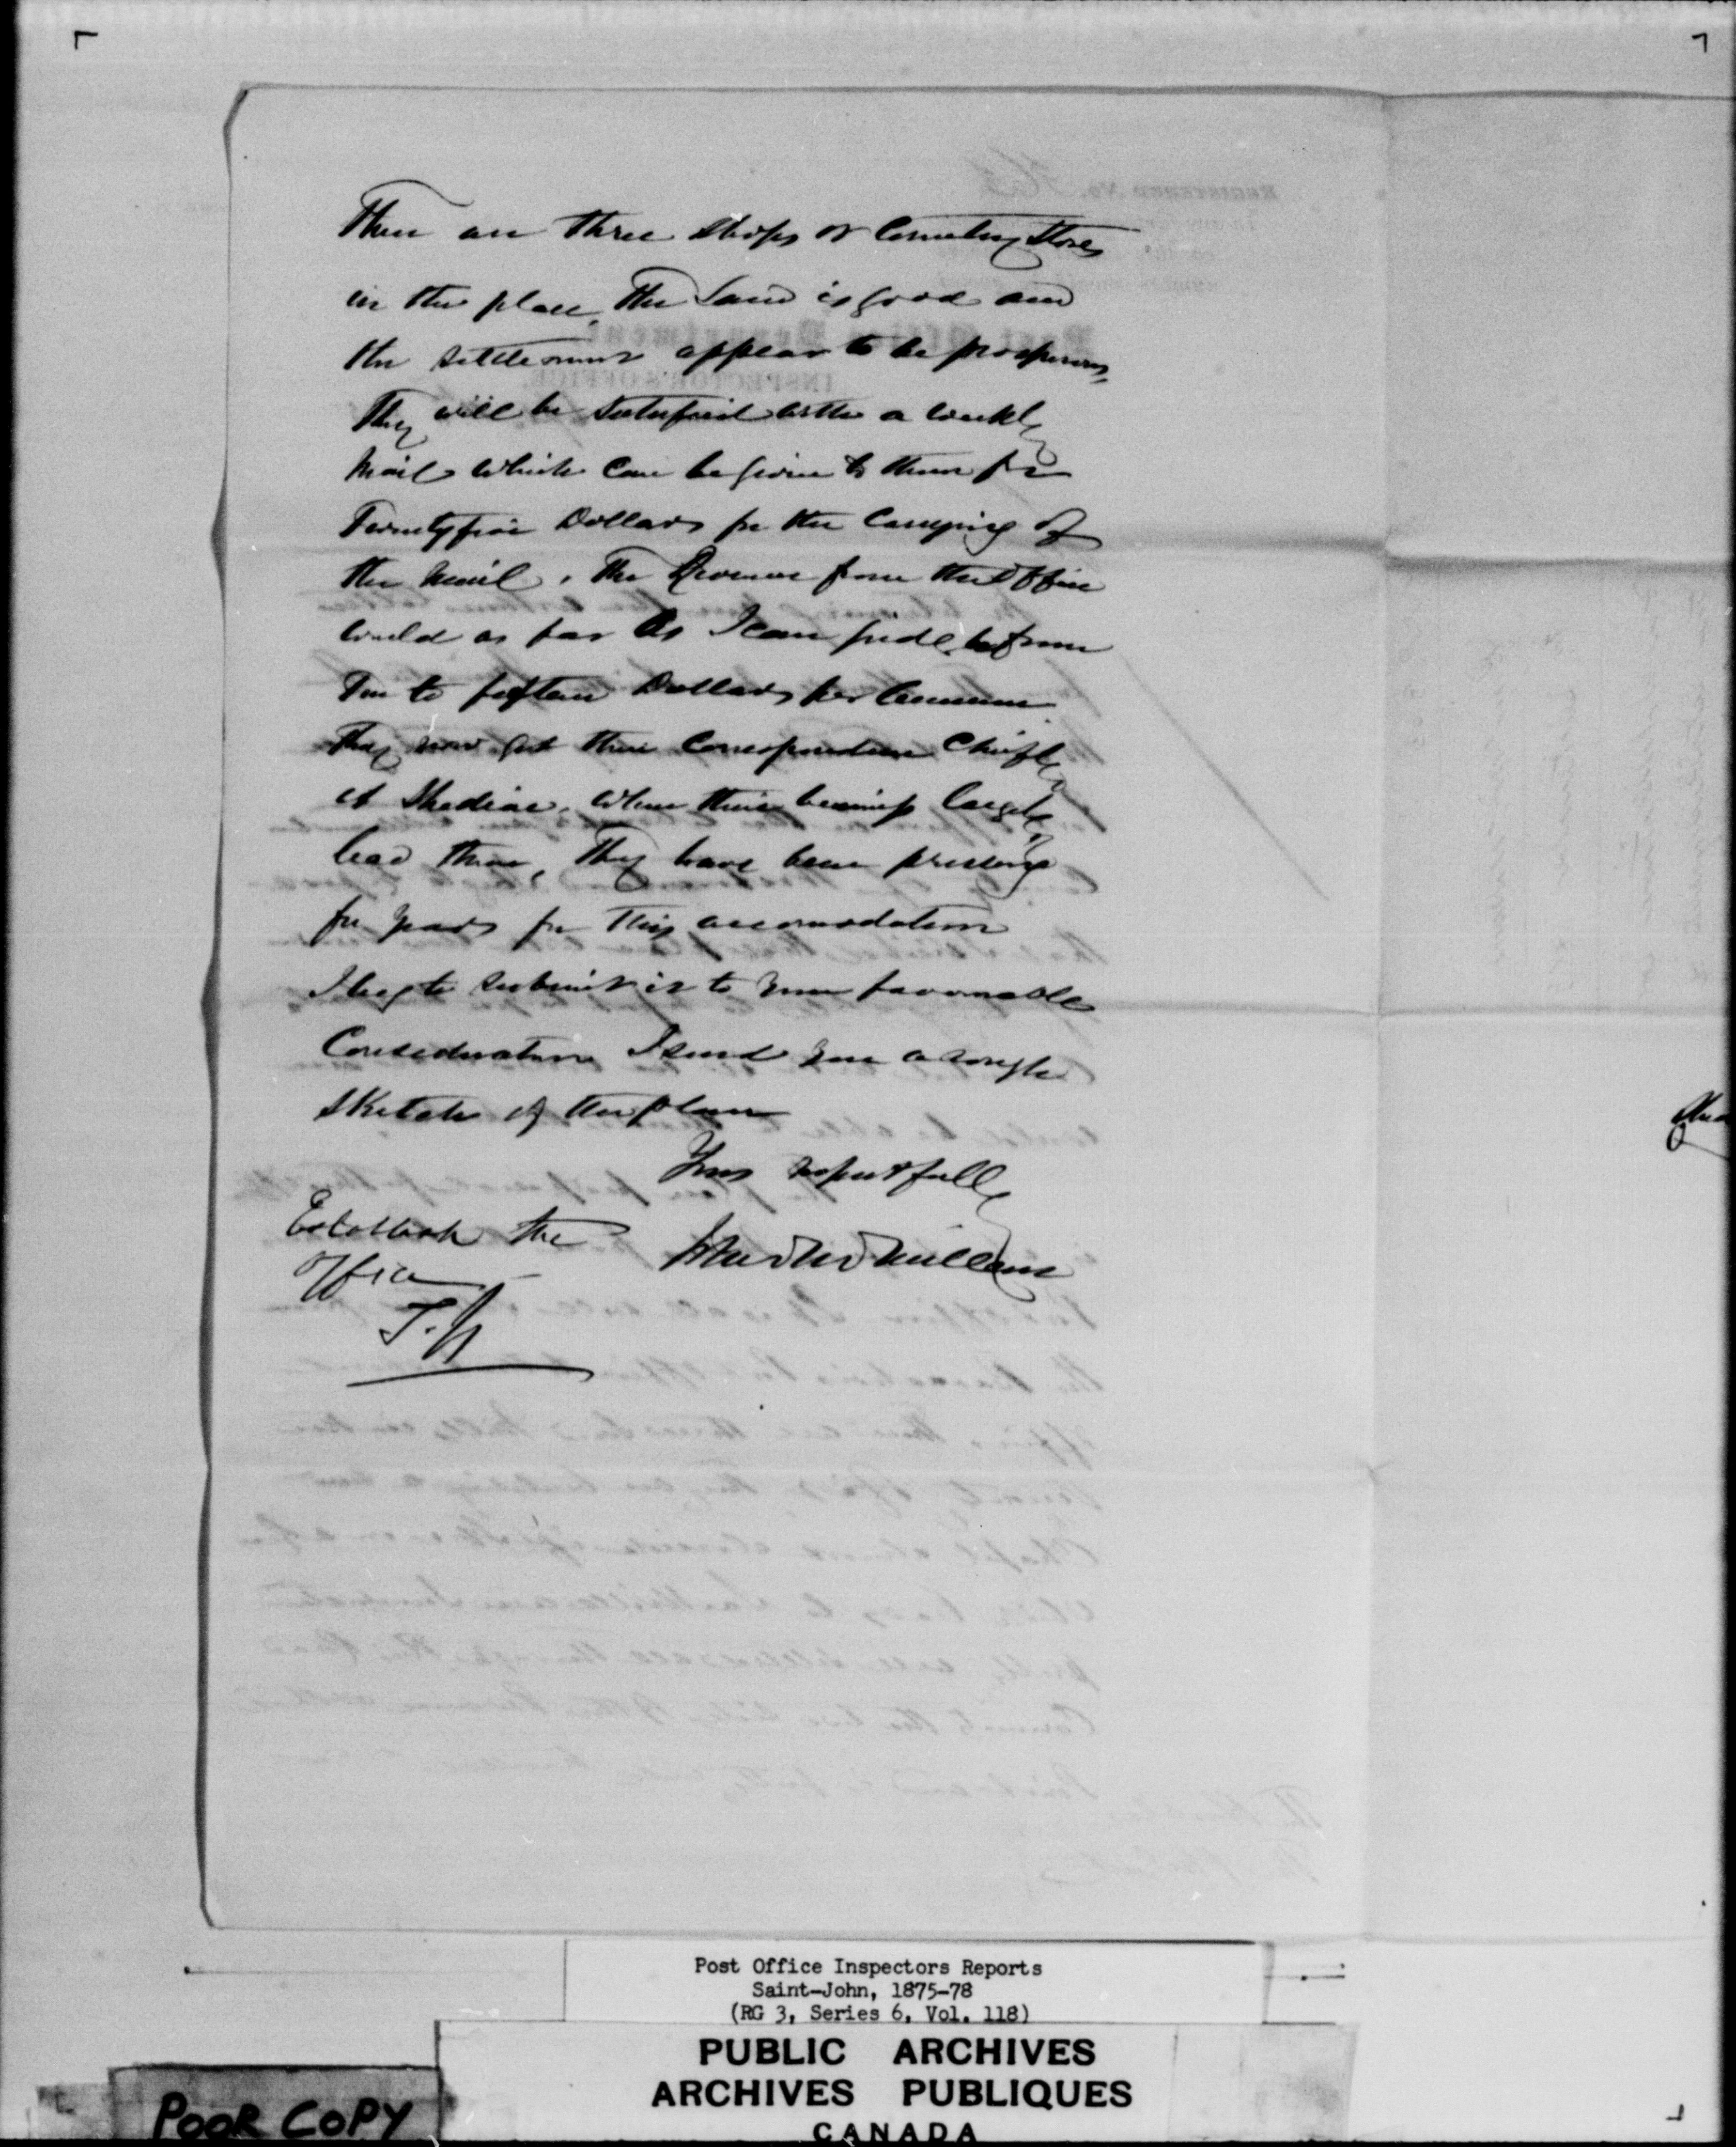 There are three Shops or Country Stores
in the place, The Land is good and
the settlement appear to be prosperous,
They will be satisfied with a weekly
mail which can be given to them for
Twenty five Dollars for the carrying of
the mail, The Revenue from the Office
would as far as I can judge be from
Ten to fifteen Dollars per Annum
They now get their Correspondence Chiefly
at Shediac, where their business largely
lead them, They have been pressing
for years for this accomodation
I beg to submit it to your favourable
Consideration I send you a rough
sketch of the place
Yours respectfully
John McMillan
Establish the
Office
Post Office Inspectors Reports
Saint-John, 1875-78
(RG 3, Series 6, Vol. 118)
PUBLIC ARCHIVES
ARCHIVES PUBLIQUES
CANADA
POOR COPY